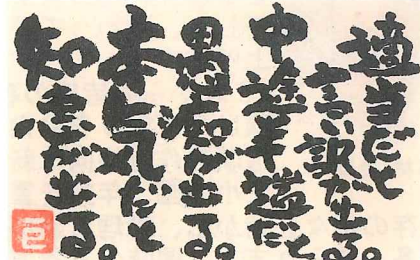 適当だと
言い訳が出る。
中途半端だと
愚痴が出る。
本気だと
知恵が出る。